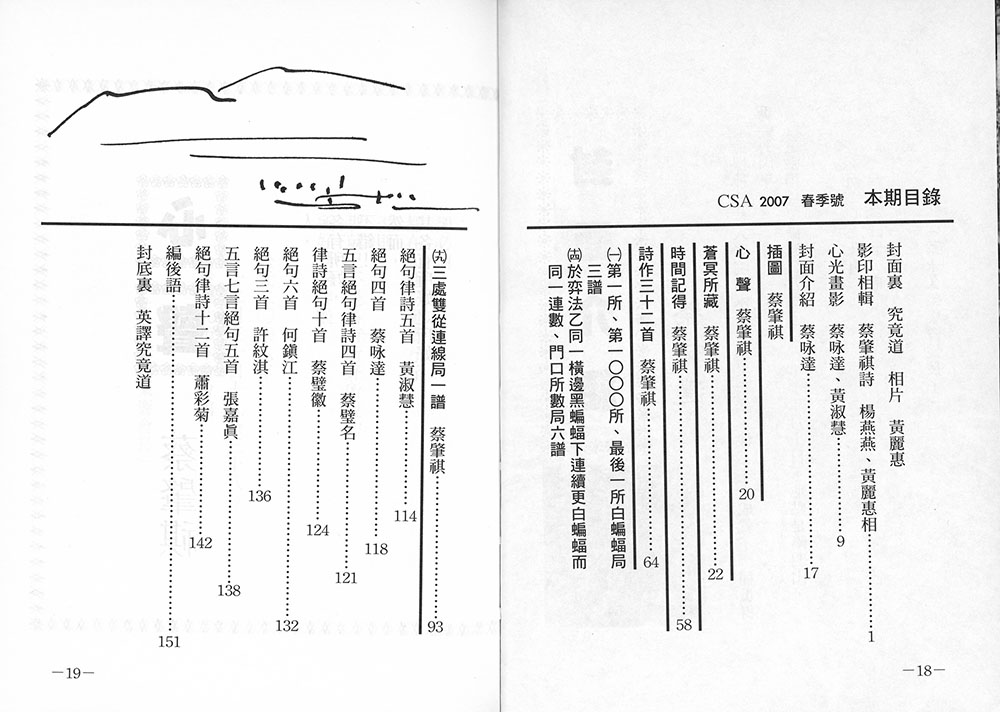 CSA 2007 春季號 本期目錄
封面裏 究竟道 相片 黃麗惠
影印相輯 蔡肇祺詩 楊燕燕、黃麗惠相………1
心光畫影 蔡咏達、黃淑慧………9
封面介紹 蔡咏達………17
插圖 蔡肇祺
心聲 蔡肇祺………20
蒼冥所藏 蔡肇祺………22
時間記得 蔡肇祺………58
詩作三十二首 蔡肇祺………64
㈠第一所、第一〇〇〇所、最後一所白蝙蝠局
三譜
於弈法乙同一橫邊黑蝙蝠下連續更白蝙蝠而
同一連數、門口所數局六譜
—18—
三處雙從連線局一譜 蔡肇祺………93
絕句律詩五首 黃淑慧………114
絕句四首 蔡咏達………118
五言絕句律詩四首 蔡璧名………121
律詩絕句十首 蔡璧徽………124
絕句六首 何鎮江………132
絕句三首 許紋淇………136
五言七言絕句五首 張嘉眞………138
絕句律詩十二首 蕭彩菊………142
編後語………151
封底裏 英譯究竟道
—19—